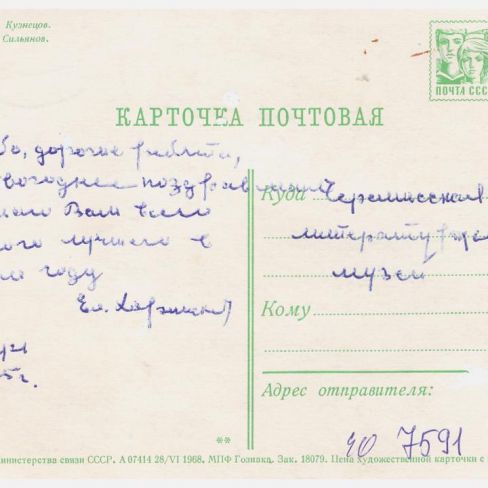 Кузнецов.
Сильянов.
ПОЧТА СССР
КАРТОЧКА ПОЧТОВАЯ
бо, дорогие ребята,
вогоднее
Вам всего
ого лучшего в
году
Ел.
5г.
Куда
литературн
музей
Кому
Адрес отправителя:
**
7591
инистерства связи СССР. А 07414 28/VI 1968. МПФ Гознака. Зак. 18079. Цена художественной карточки с